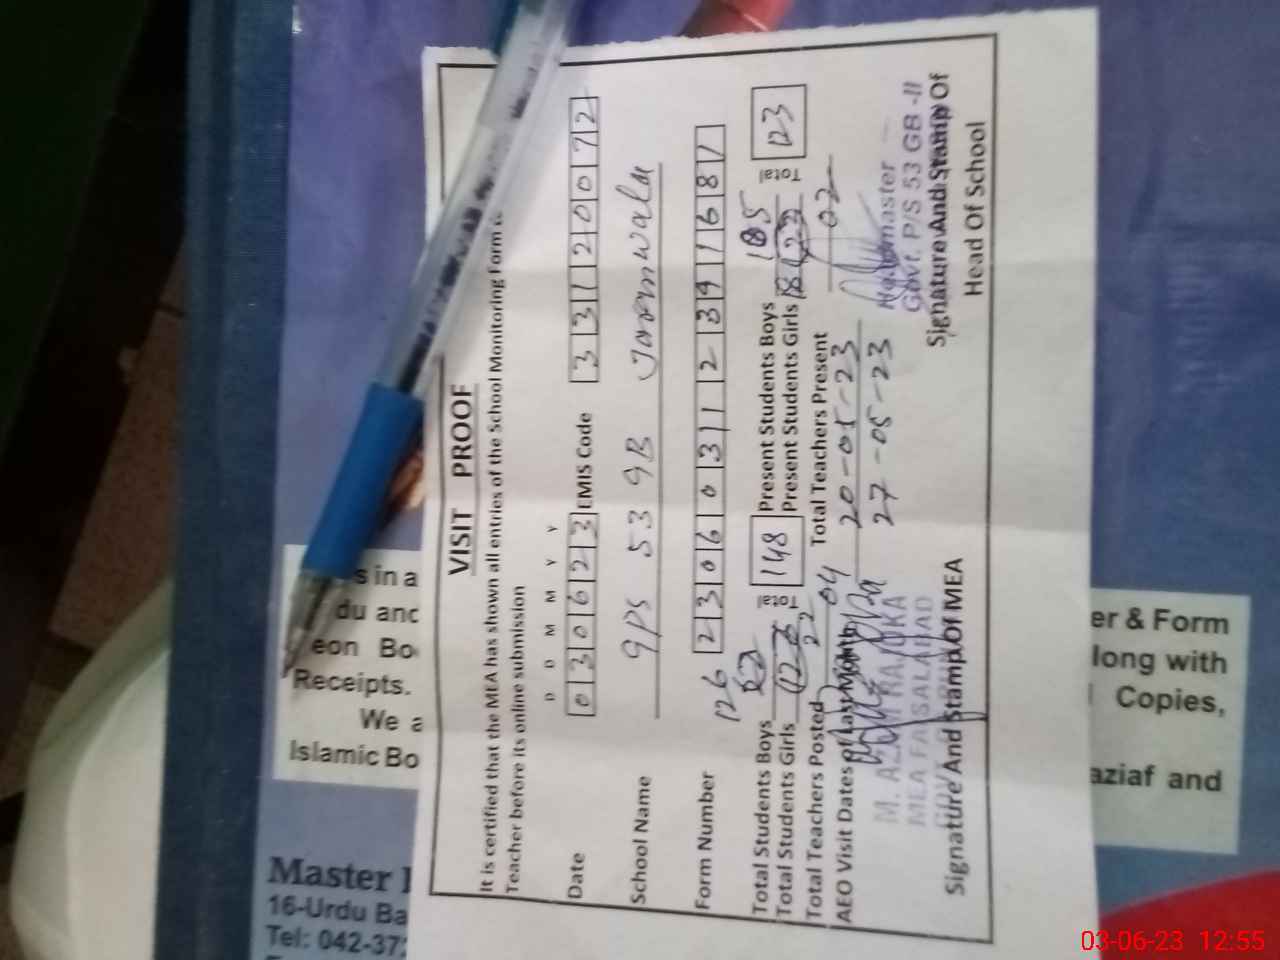 VISIT PROOF
It is certified that the MEA has shown all entries of the School Monitoring Form
Teacher before its online submission
D D M M Y Y
Date 030623 EMIS Code 33120072
School Name GPS 53 GB
Form Number 230603112391681
126 185
Total Students Boys Total 148 Present Students Boys Total 123
Total Students Girls 22 Present Students Girls
Total Teachers Posted 04 Total Teachers Present 02
AEO Visit Dates of Last Month 20-05-23
27-05-23
MEA FAISALABAD
Govt. P/S 53 GB-II
Signature And Stamp Of MEA
Signature And Stamp Of
Head Of School
s in a
du and
eon Bo
Receipts.
We a
Islamic Bo
er & Form
long with
Copies,
aziaf and
Master
16-Urdu Ba
Tel: 042-37
03-06-23 12:55